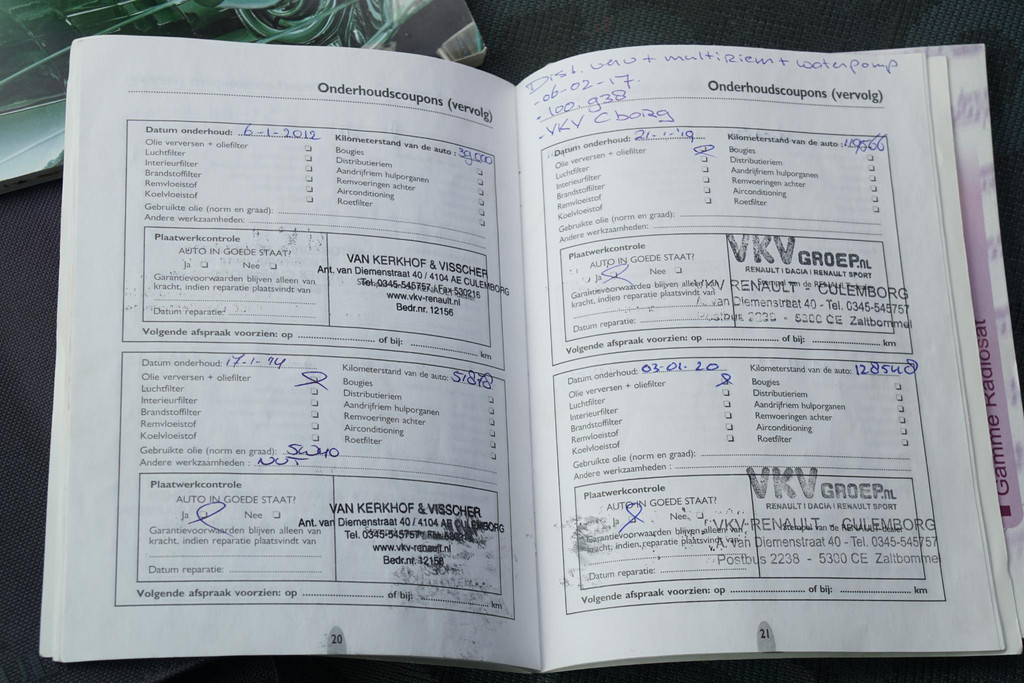 Onderhoudscoupons (vervolg)
Datum onderhoud: 6-1-2012 Kilometerstand van de auto: 39,000
Olie verversen + oliefilter Bougies
Luchtfilter Distributieriem
Interieurfilter Aandrijfriem hulporganen
Brandstoffilter Remvoeringen achter
Remvloeistof Airconditioning
Koelvloeistof Roetfilter
Gebruikte olie (norm en graad):
Andere werkzaamheden:
Plaatwerkcontrole
AUTO IN GOEDE STAAT?
Ja Nee
Garantievoorwaarden blijven alleen van
kracht, indien reparatie plaatsvindt van
Datum reparatie:
VAN KERKHOF & VISSCHER
Ant. van Diemenstraat 40 / 4104 AE CULEMBORG
Tel. 0345-545757 / Fax 530216
www.vkv-renault.nl
Bedr.nr. 12156
Volgende afspraak voorzien: op of bij: km
Datum onderhoud: 17-1-14 Kilometerstand van de auto: 51878
Olie verversen + oliefilter Bougies
Luchtfilter Distributieriem
Interieurfilter Aandrijfriem hulporganen
Brandstoffilter Remvoeringen achter
Remvloeistof Airconditioning
Koelvloeistof Roetfilter
Gebruikte olie (norm en graad): 5W40
Andere werkzaamheden:
Plaatwerkcontrole
AUTO IN GOEDE STAAT?
Ja Nee
Garantievoorwaarden blijven alleen van
kracht, indien reparatie plaatsvindt van
Datum reparatie:
VAN KERKHOF & VISSCHER
Ant. van Diemenstraat 40 / 4104 AE CULEMBORG
Tel. 0345-545757
www.vkv-renault.nl
Bedr.nr. 12156
Volgende afspraak voorzien: op of bij: km
20
Dist. verv + multiriem + waterpomp
-06-02-17
-100.938
-VKV Cborg
Onderhoudscoupons (vervolg)
Datum onderhoud: 21-1-'19 Kilometerstand van de auto: 119566
Olie verversen + oliefilter Bougies
Luchtfilter Distributieriem
Interieurfilter Aandrijfriem hulporganen
Brandstoffilter Remvoeringen achter
Remvloeistof Airconditioning
Koelvloeistof Roetfilter
Gebruikte olie (norm en graad):
Andere werkzaamheden:
Plaatwerkcontrole
AUTO IN GOEDE STAAT?
Ja Nee
Garantievoorwaarden blijven alleen van
kracht, indien reparatie plaatsvindt van
Datum reparatie:
VKV GROEP.NL
RENAULT | DACIA | RENAULT SPORT
VKV RENAULT - CULEMBORG
A. van Diemenstraat 40 - Tel. 0345-545757
Postbus 2238 - 5300 CE Zaltbommel
Volgende afspraak voorzien: op of bij: km
Datum onderhoud: 03-01-20 Kilometerstand van de auto: 128548
Olie verversen + oliefilter Bougies
Luchtfilter Distributieriem
Interieurfilter Aandrijfriem hulporganen
Brandstoffilter Remvoeringen achter
Remvloeistof Airconditioning
Koelvloeistof Roetfilter
Gebruikte olie (norm en graad):
Andere werkzaamheden:
Plaatwerkcontrole
AUTO IN GOEDE STAAT?
Ja Nee
Garantievoorwaarden blijven alleen van
kracht, indien reparatie plaatsvindt van
Datum reparatie:
VKV GROEP.NL
RENAULT | DACIA | RENAULT SPORT
VKV-RENAULT - CULEMBORG
A. van Diemenstraat 40 - Tel. 0345-545757
Postbus 2238 - 5300 CE Zaltbommel
Volgende afspraak voorzien: op of bij: km
21
Gamme Radiosat